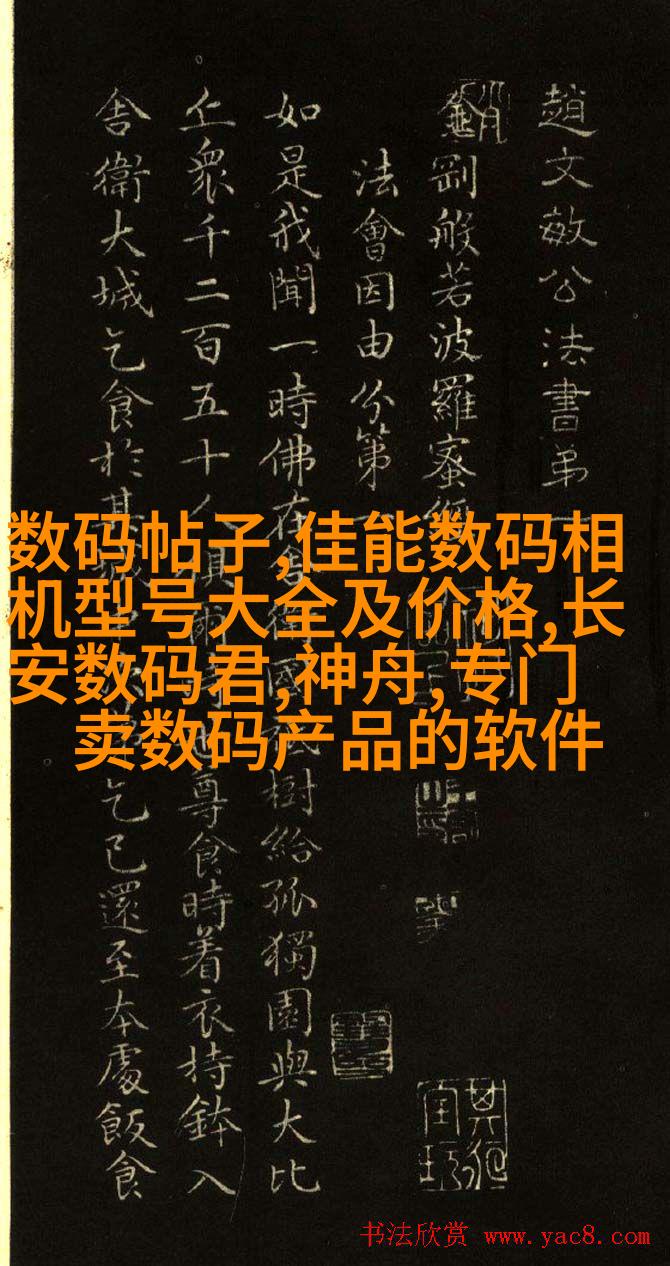 趙文敏公法書弟
金剛般若波羅蜜經
法會因由分第一
如是我聞一時佛在舍衛國祇樹給孤獨園與大比
丘眾千二百五十人俱爾時世尊食時着衣持鉢入
舍衛大城乞食於其乞已還至本處飯食
数码帖子,佳能数码相
机型号大全及价格,长
安数码君,神舟,专门
卖数码产品的软件
书法欣赏 www.yac8.com